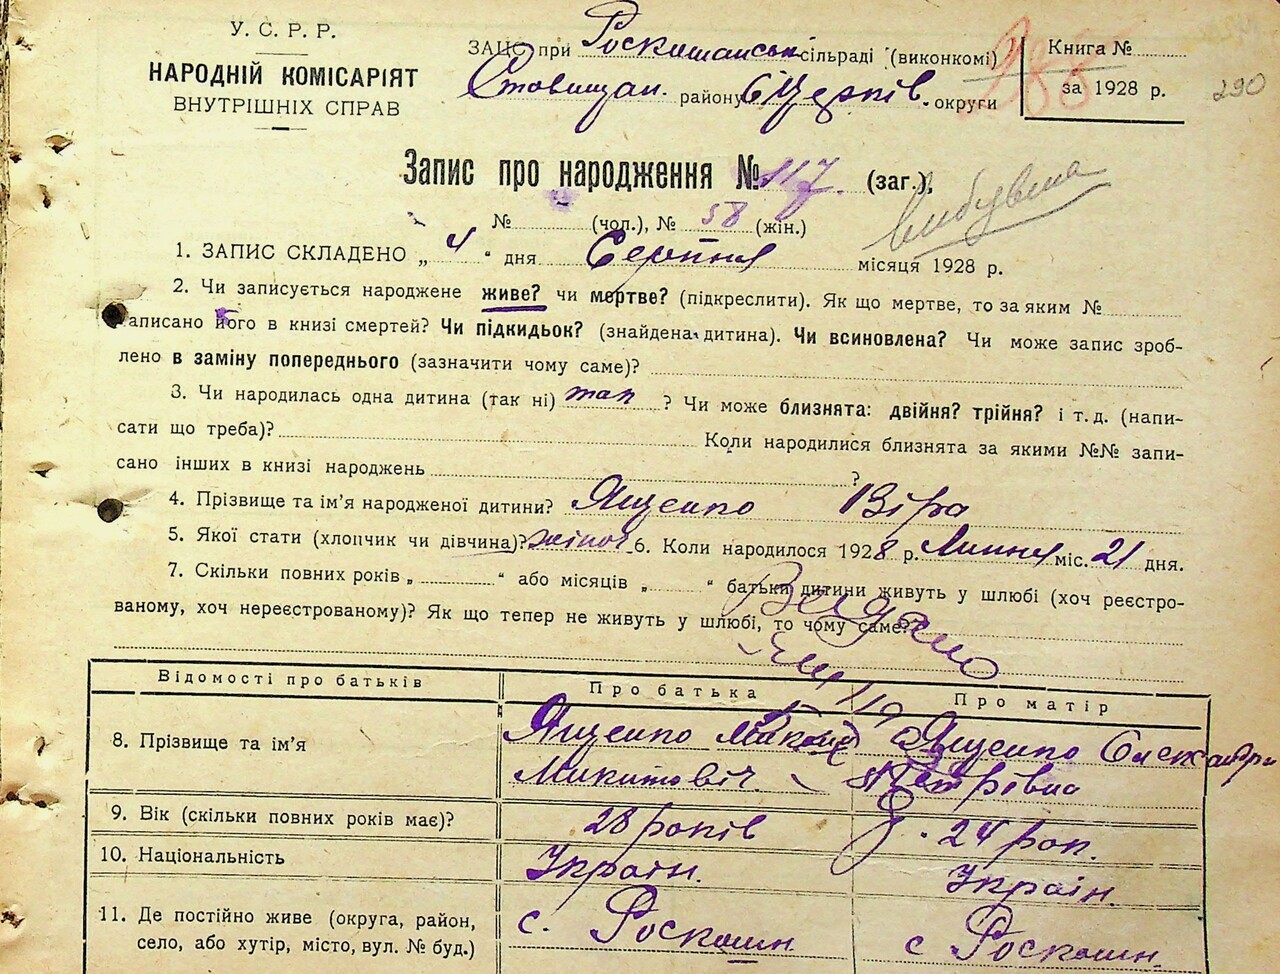 У. С. Р. Р.
НАРОДНІЙ КОМІСАРІЯТ
ВНУТРІШНІХ СПРАВ
ЗАЦС при Роскишанськ сільраді (виконкомі)
Ставищан. району БЦерків. округи
288
Книга №
за 1928 р.
290
Запис про народження № 117 (заг.),
вибувша
№ (чол.), № 58 (жін.)
1. ЗАПИС СКЛАДЕНО „ 4 “ дня Серпня місяця 1928 р.
2. Чи записується народжене живе? чи мертве? (підкреслити). Як що мертве, то за яким №
записано його в книзі смертей? Чи підкидьок? (знайдена дитина). Чи всиновлена? Чи може запис зроб-
лено в заміну попереднього (зазначити чому саме)?
3. Чи народилась одна дитина (так ні) так ? Чи може близнята: двійня? трійня? і т. д. (напи-
сати що треба)? Коли народилися близнята за якими №№ запи-
сано інших в книзі народжень ?
4. Прізвище та ім’я народженої дитини? Ященко Віра
5. Якої стати (хлопчик чи дівчина)? жіноч 6. Коли народилося 1928 р. Липня міс. 21 дня.
7. Скільки повних років „ “ або місяців „ “ батьки дитини живуть у шлюбі (хоч реєстро-
ваному, хоч нереєстрованому)? Як що тепер не живуть у шлюбі, то чому саме?
Видано
Відомості про батьків Про батька Про матір
8. Прізвище та ім’я Ященко Ященко Олександра
Микитович Петрівна
9. Вік (скільки повних років має)? 28 років 24 рок.
10. Національність Украін. Украін.
11. Де постійно живе (округа, район, с. Роскошн с Роскошн.
село, або хутір, місто, вул. № буд.)